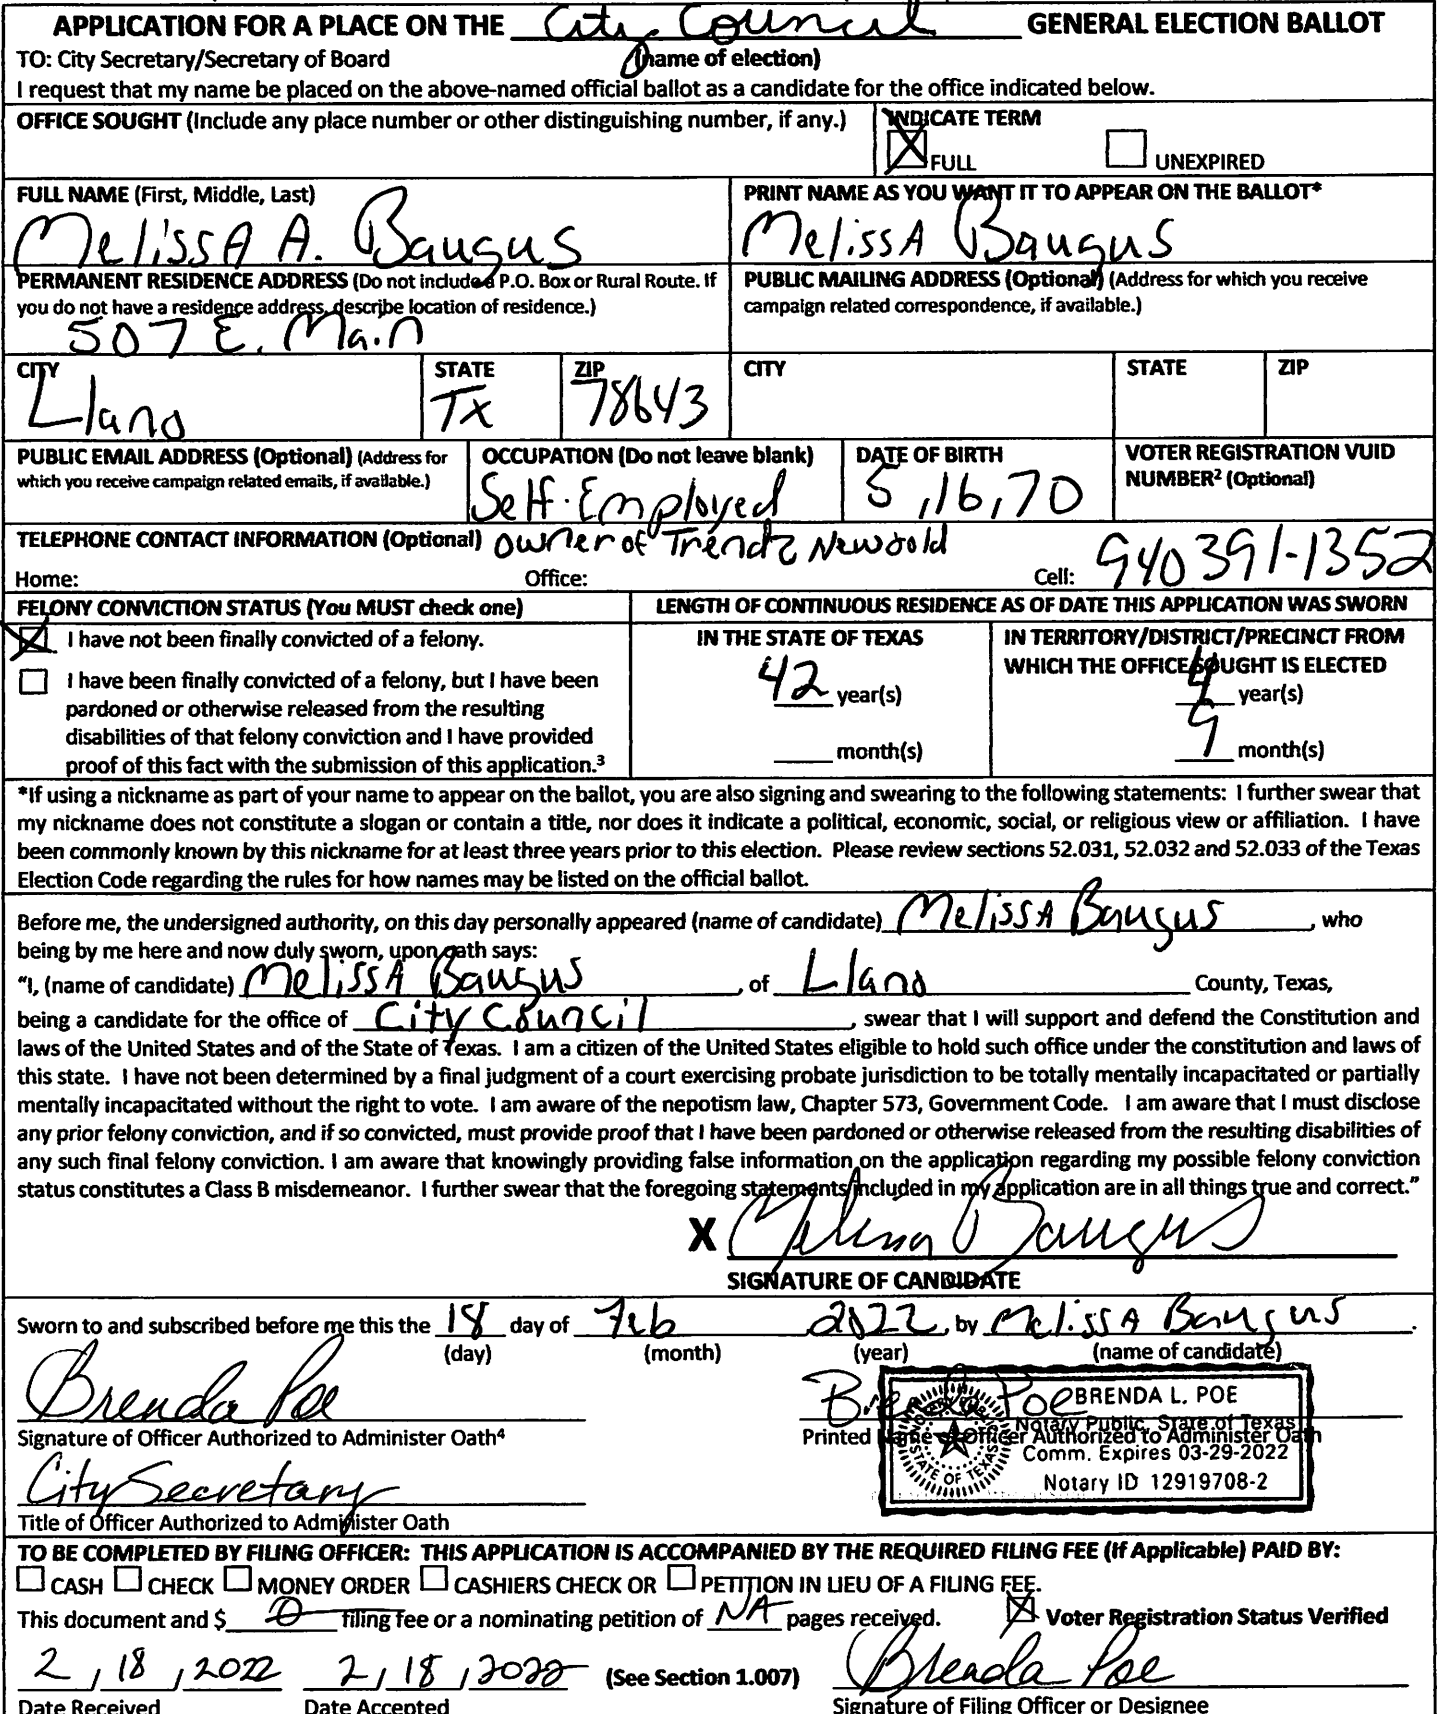 APPLICATION FOR A PLACE ON THE City Council GENERAL ELECTION BALLOT
TO: City Secretary/Secretary of Board (name of election)
I request that my name be placed on the above-named official ballot as a candidate for the office indicated below.
OFFICE SOUGHT (Include any place number or other distinguishing number, if any.)
INDICATE TERM
FULL UNEXPIRED
FULL NAME (First, Middle, Last)
MelissA A. Baugus
PRINT NAME AS YOU WANT IT TO APPEAR ON THE BALLOT*
MelissA Baugus
PERMANENT RESIDENCE ADDRESS (Do not include a P.O. Box or Rural Route. If
you do not have a residence address, describe location of residence.)
507 E. Main
PUBLIC MAILING ADDRESS (Optional) (Address for which you receive
campaign related correspondence, if available.)
CITY STATE ZIP CITY STATE ZIP
Llano Tx 78643
PUBLIC EMAIL ADDRESS (Optional) (Address for
which you receive campaign related emails, if available.)
OCCUPATION (Do not leave blank)
Self-Employed
DATE OF BIRTH
5,16,70
VOTER REGISTRATION VUID
NUMBER² (Optional)
TELEPHONE CONTACT INFORMATION (Optional) owner of Trendz New&old
Home: Office: Cell: 940 391-1352
FELONY CONVICTION STATUS (You MUST check one)
I have not been finally convicted of a felony.
I have been finally convicted of a felony, but I have been
pardoned or otherwise released from the resulting
disabilities of that felony conviction and I have provided
proof of this fact with the submission of this application.³
LENGTH OF CONTINUOUS RESIDENCE AS OF DATE THIS APPLICATION WAS SWORN
IN THE STATE OF TEXAS
42 year(s)
month(s)
IN TERRITORY/DISTRICT/PRECINCT FROM
WHICH THE OFFICE SOUGHT IS ELECTED
4 year(s)
9 month(s)
*If using a nickname as part of your name to appear on the ballot, you are also signing and swearing to the following statements: I further swear that
my nickname does not constitute a slogan or contain a title, nor does it indicate a political, economic, social, or religious view or affiliation. I have
been commonly known by this nickname for at least three years prior to this election. Please review sections 52.031, 52.032 and 52.033 of the Texas
Election Code regarding the rules for how names may be listed on the official ballot.
Before me, the undersigned authority, on this day personally appeared (name of candidate) MelissA Baugus, who
being by me here and now duly sworn, upon oath says:
"I, (name of candidate) MelissA Baugus, of Llano County, Texas,
being a candidate for the office of City Council, swear that I will support and defend the Constitution and
laws of the United States and of the State of Texas. I am a citizen of the United States eligible to hold such office under the constitution and laws of
this state. I have not been determined by a final judgment of a court exercising probate jurisdiction to be totally mentally incapacitated or partially
mentally incapacitated without the right to vote. I am aware of the nepotism law, Chapter 573, Government Code. I am aware that I must disclose
any prior felony conviction, and if so convicted, must provide proof that I have been pardoned or otherwise released from the resulting disabilities of
any such final felony conviction. I am aware that knowingly providing false information on the application regarding my possible felony conviction
status constitutes a Class B misdemeanor. I further swear that the foregoing statements included in my application are in all things true and correct."
X Melissa Baugus
SIGNATURE OF CANDIDATE
Sworn to and subscribed before me this the 18 day of Feb 2022, by MelissA Baugus.
(day) (month) (year) (name of candidate)
Brenda Poe
Signature of Officer Authorized to Administer Oath⁴
Brenda Poe
Printed Name of Officer Authorized to Administer Oath
BRENDA L. POE
Notary Public, State of Texas
Comm. Expires 03-29-2022
Notary ID 12919708-2
NOTARY PUBLIC
STATE OF TEXAS
City Secretary
Title of Officer Authorized to Administer Oath
TO BE COMPLETED BY FILING OFFICER: THIS APPLICATION IS ACCOMPANIED BY THE REQUIRED FILING FEE (If Applicable) PAID BY:
CASH CHECK MONEY ORDER CASHIERS CHECK OR PETITION IN LIEU OF A FILING FEE.
This document and $ 0 filing fee or a nominating petition of NA pages received. Voter Registration Status Verified
2,18,2022 2,18,2022 (See Section 1.007) Brenda Poe
Date Received Date Accepted Signature of Filing Officer or Designee